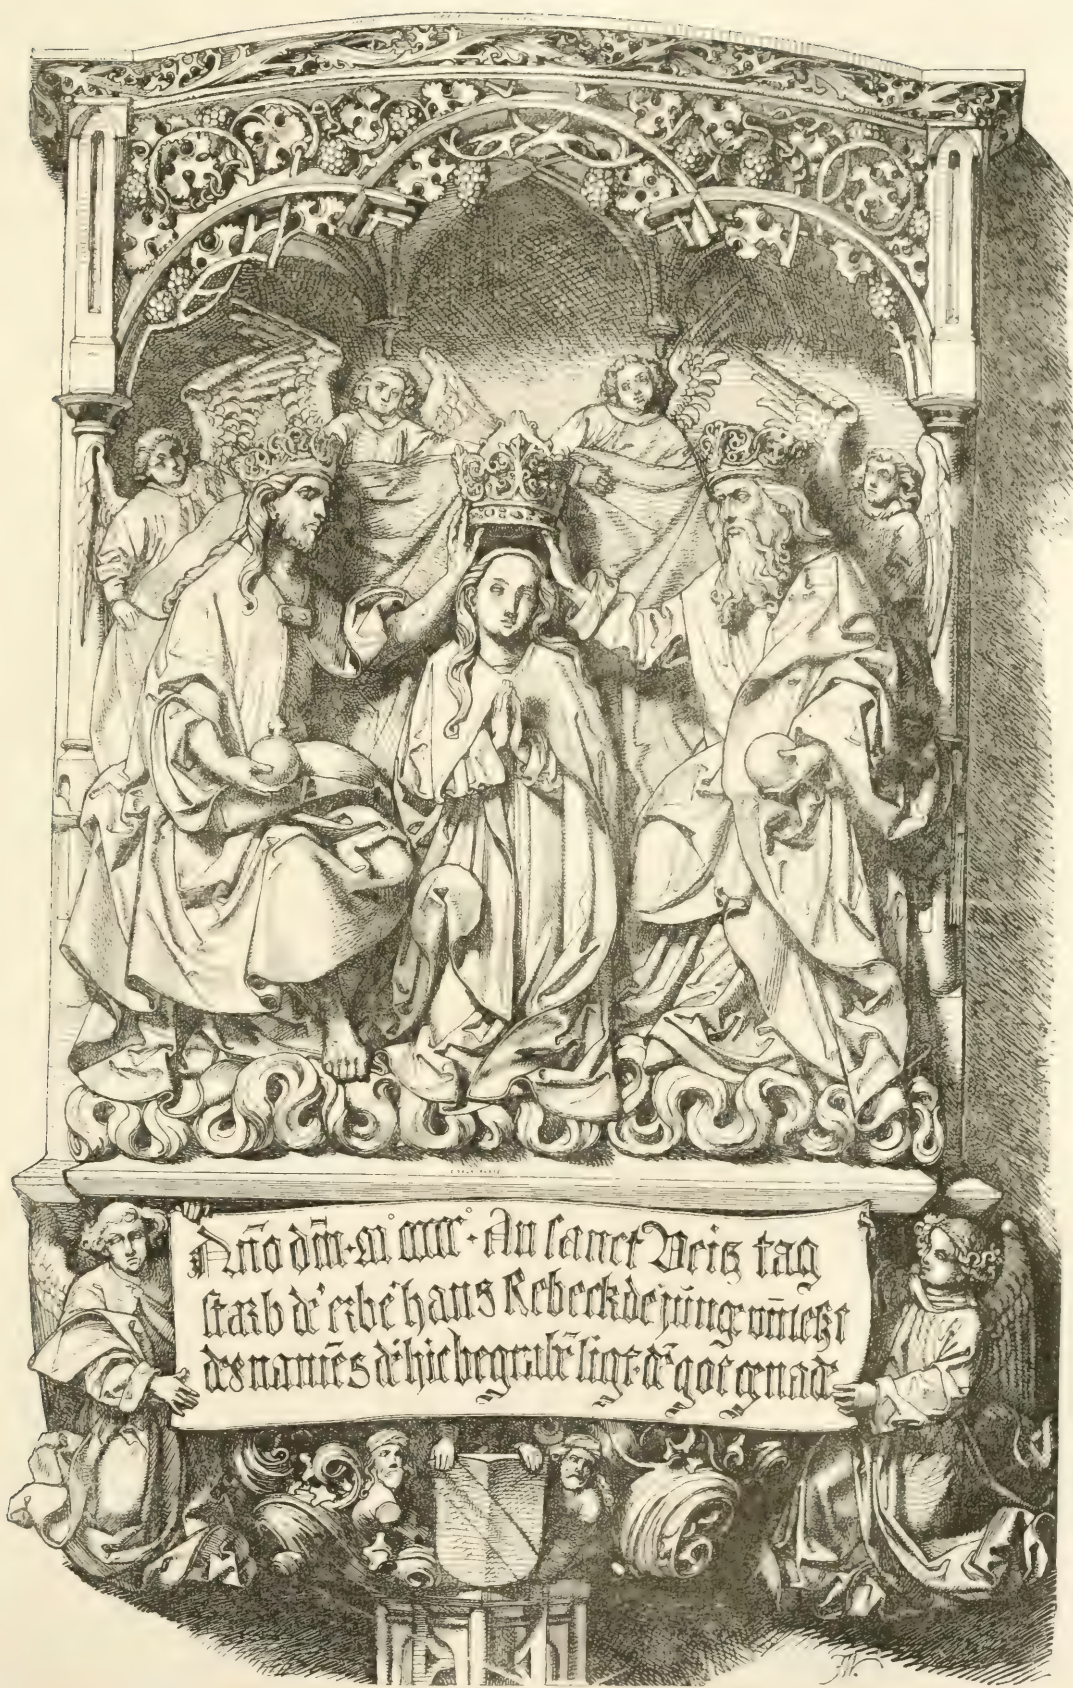 Año dm̄ · m° cccc° · An sanct Veitz tag
starb d̕ erbe̕ hans Rebeck de̕ jünge̕ vn̄ letzt
des namēs d̕ hie begrabē ligt · dē got genade